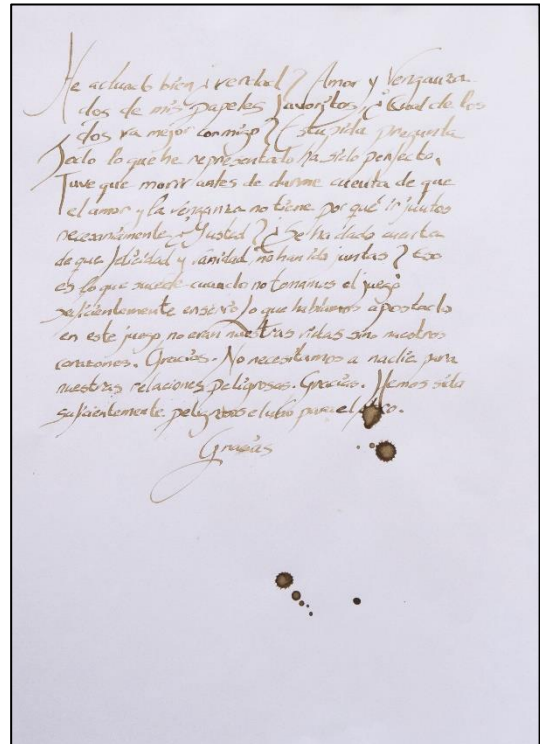 He actuado bien ¿verdad? Amor y Venganza
dos de mis papeles favoritos, ¿cual de los
dos va mejor conmigo? Estupida pregunta
Todo lo que he representado ha sido perfecto.
Tuve que morir antes de darme cuenta de que
el amor y la venganza no tiene por qué ir juntos
necesariamente ¿Y usted? ¿Se ha dado cuenta
de que felicidad y vanidad no han ido juntas? Eso
es lo que sucede cuando no tomamos el juego
suficientemente en serio lo que habíamos apostado
en este juego no eran nuestras vidas sino nuestros
corazones. Gracias. No necesitamos a nadie para
nuestras relaciones peligrosas. Gracias. Hemos sido
suficientemente peligrosos el uno para el otro.
Gracias